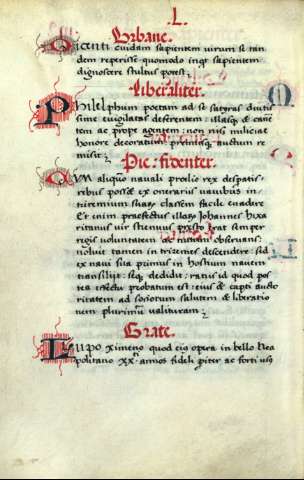 L.
Urbane.
Dicenti cuidam sapientem virum se tan
dem reperisse: quomodo inqt sapientem
dignoscere stultus potest.
Liberaliter.
Philelphum poetam ad se satyras diutis
sime evigilatas deferentem: illasq; & caut
tem ac prope agentem: non nisi militiae
honore decoratum premiisq; auctum re
misit.
Pie: fidenter.
Cum aliquo navali prelio rex desperatis
rebus posset ex onerariis navibus in
triremium suarum classem facile evadere
Et enim praefectus illarum Iohannes
ritanus vir strenuus praesto erat semper
regis voluntatem ac nutum observans:
noluit tamen in triremes descendere: sed
ex navi sua primus in hostium navem
transiliit: seq; dedidit: ratus id quod pos
tea eventu probatum est: eius & capti aucto
ritatem ad sociorum salutem & liberatio
nem plurimum valituram.
Grate.
Lupo Ximeno quod eius opera in bello Nea
politano XX. annos fideliter ac fortiter